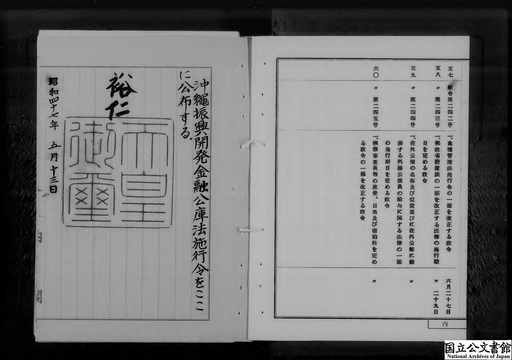 五七 政令第二四二号 『食糧管理法施行令の一部を改正する政令 六月二十七日
五八 〃 第二四三号 『郵政省設置法の一部を改正する法律の施行期
日を定める政令 〃 二十九日
五九 〃 第二四四号 『在外公館の名称及び位置並びに在外公館に勤
務する外務公務員の給与に関する法律の一部
の施行期日を定める政令 〃
六〇 〃 第二四五号 『検察審査員等の旅費、日当及び宿泊料を定め
る政令の一部を改正する政令 〃
内
沖縄振興開発金融公庫法施行令をここ
に公布する
裕仁
天皇
御璽
昭和四十七年 五月十三日
国立公文書館
National Archives of Japan